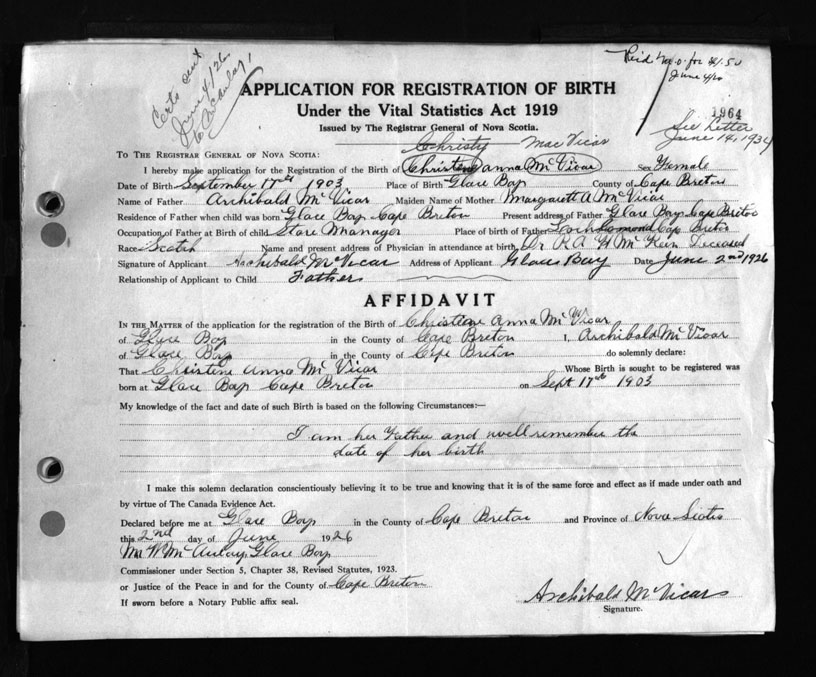 Certs sent
June 4/26
to McAulay
Reid M.O. for $1.50
June 4/26
APPLICATION FOR REGISTRATION OF BIRTH
1964
Under the Vital Statistics Act 1919
See Letter
June 14, 1934
Issued by The Registrar General of Nova Scotia.
Christy Mac Vicar
TO THE REGISTRAR GENERAL OF NOVA SCOTIA:
I hereby make application for the Registration of the Birth of Christene anna Mc Vicar Sex Female
Date of Birth September 17th 1903 Place of Birth Glace Bay County of Cape Breton
Name of Father Archibald Mc Vicar Maiden Name of Mother Margarett A Mc Vicar
Residence of Father when child was born Glace Bay Cape Breton Present address of Father Glace Bay Cape Breton
Occupation of Father at Birth of child Store Manager Place of birth of Father Loch Lomond Cape Breton
Race Scotch Name and present address of Physician in attendance at birth Dr R.A H Mc Keen Deceased
Signature of Applicant Archibald Mc Vicar Address of Applicant Glace Bay Date June 2nd 1926
Relationship of Applicant to Child Father
AFFIDAVIT
IN THE MATTER of the application for the registration of the Birth of Christene Anna Mc Vicar
of Glace Bay in the County of Cape Breton I, Archibald Mc Vicar
of Glace Bay in the County of Cape Breton do solemnly declare:
That Christene Anna Mc Vicar Whose Birth is sought to be registered was
born at Glace Bay Cape Breton on Sept 17th 1903
My knowledge of the fact and date of such Birth is based on the following Circumstances:—
I am her Father and well remember the
date of her birth
I make this solemn declaration conscientiously believing it to be true and knowing that it is of the same force and effect as if made under oath and
by virtue of The Canada Evidence Act.
Declared before me at Glace Bay in the County of Cape Breton and Province of Nova Scotia
this 2nd day of June 1926
M W McAulay, Glace Bay
Commissioner under Section 5, Chapter 38, Revised Statutes, 1923.
or Justice of the Peace in and for the County of Cape Breton
If sworn before a Notary Public affix seal.
Archibald Mc Vicar
Signature.